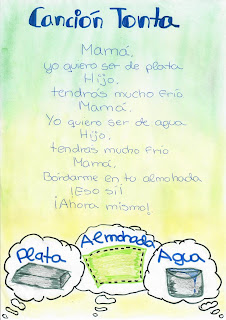 Canción Tonta
Mamá,
yo quiero ser de plata
Hijo,
tendrás mucho frío
Mamá,
Yo quiero ser de agua
Hijo,
tendrás mucho frío
Mamá,
Bordarme en tu almohada
¡Eso sí!
¡Ahora mismo!
Plata
Almohada
Agua